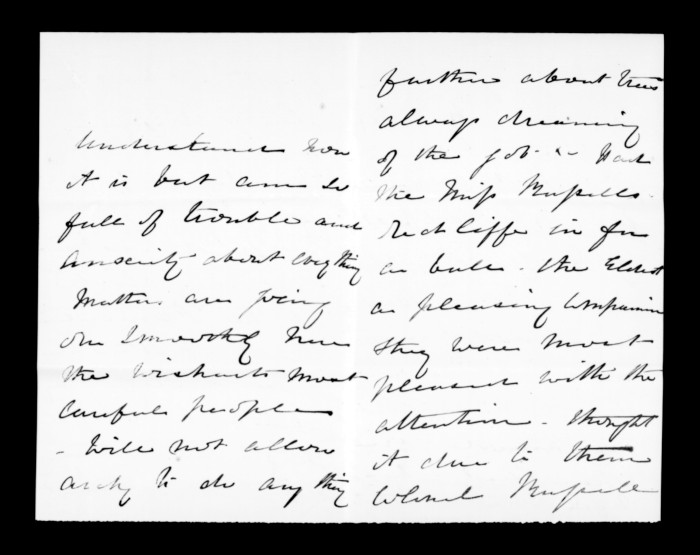 understand how
it is but am so
full of trouble and
anxiety about everything
Matters are going
on smoothly here
the Wisharts most
careful people
- Will not allow
 to do anything
further about trees
always dreaming
of the job - Had
the Miss Russells
Redcliffe in for
a ball. the Eldest
a pleasing Companion
they were most
pleased with the
attention - thought
it due to them
Colonel Russell